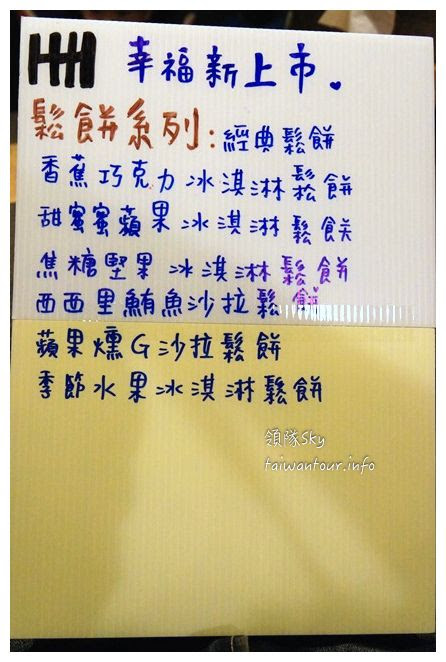 HH 幸福新上市.
鬆餅系列:經典鬆餅
香蕉巧克力冰淇淋鬆餅
甜蜜蜜蘋果冰淇淋鬆餅
焦糖堅果冰淇淋鬆餅
西西里鮪魚沙拉鬆餅
蘋果燻G沙拉鬆餅
季節水果冰淇淋鬆餅
領隊Sky
taiwantour.info